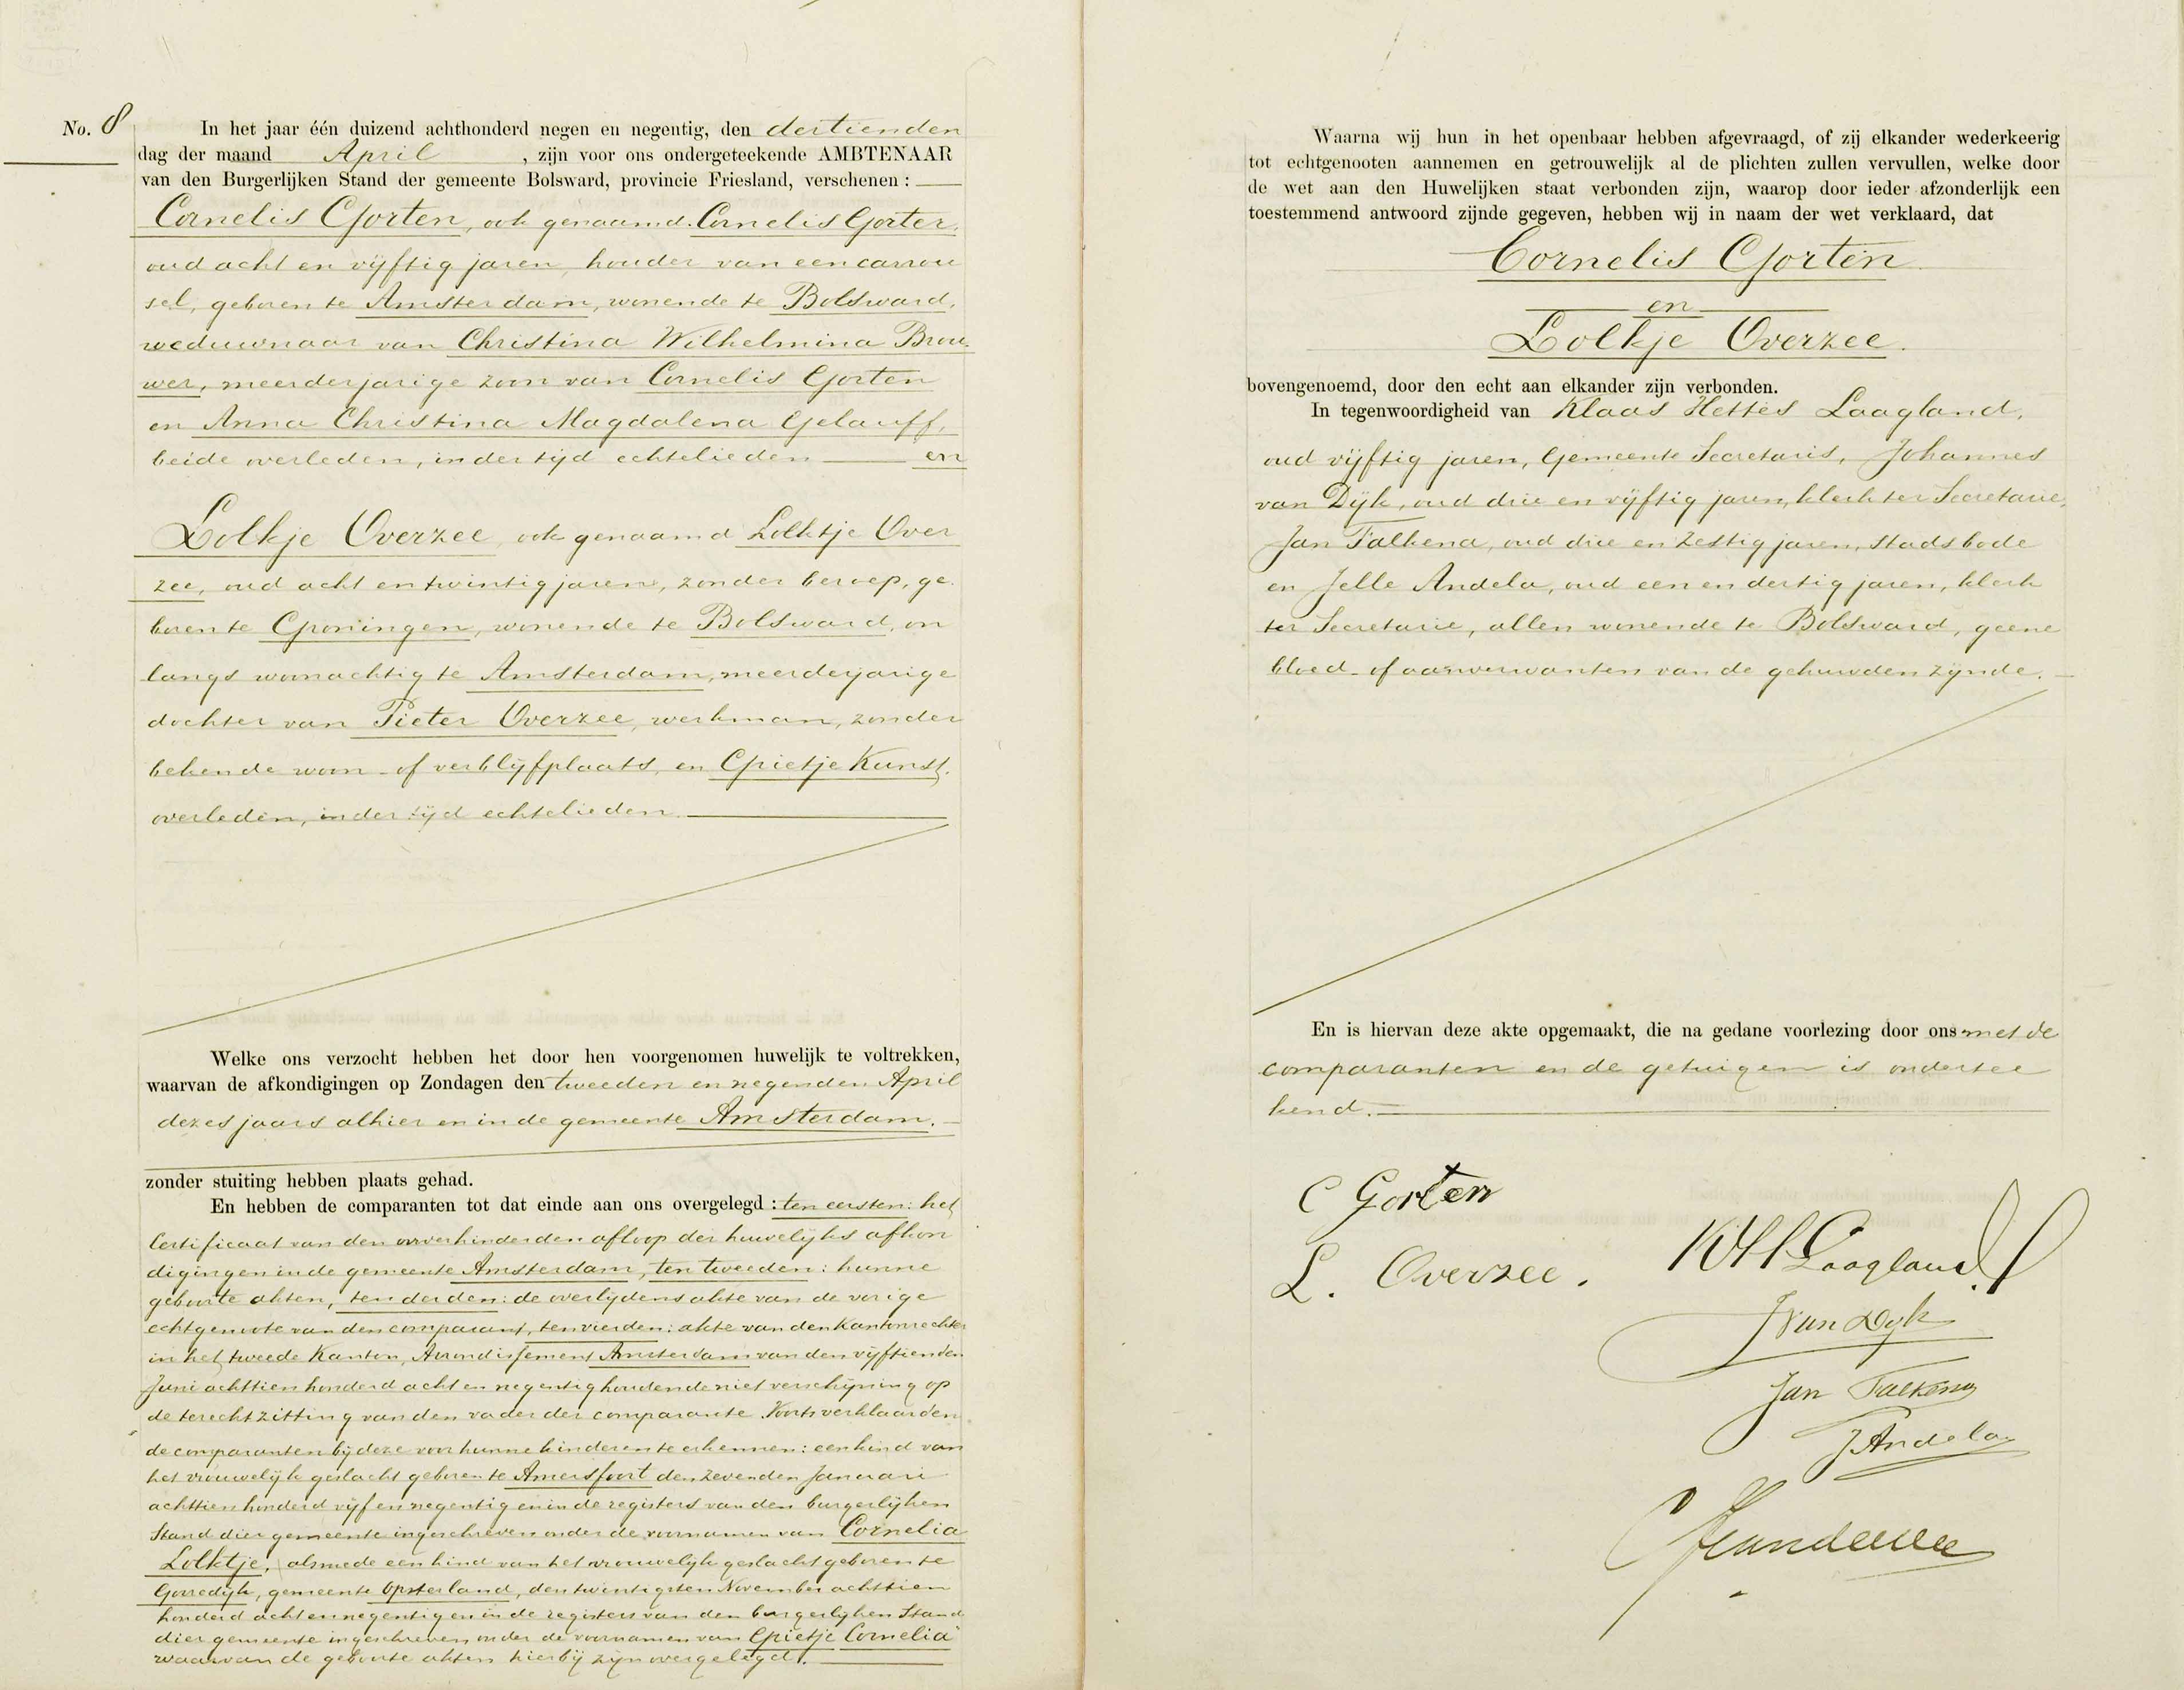 No. 8
In het jaar één duizend achthonderd negen en negentig, den dertienden
dag der maand April , zijn voor ons ondergeteekende AMBTENAAR
van den Burgerlijken Stand der gemeente Bolsward, provincie Friesland, verschenen :
Cornelis Gorten, ook genaamd Cornelis Gorter,
oud acht en vijftig jaren, houder van een carrou
sel, geboren te Amsterdam, wonende te Bolsward,
weduwnaar van Christina Wilhelmina Brou
wer, meerderjarige zoon van Cornelis Gorten
en Anna Christina Magdalena Gelauff,
beide overleden, in der tijd echtelieden en
Lolkje Overzee, ook genaamd Lolktje Over
zee, oud acht en twintig jaren, zonder beroep, ge
boren te Groningen, wonende te Bolsward, on
langs woonachtig te Amsterdam, meerderjarige
dochter van Pieter Overzee, werkman, zonder
bekende woon- of verblijfplaats, en Grietje Kunst,
overleden, in der tijd echtelieden.
Welke ons verzocht hebben het door hen voorgenomen huwelijk te voltrekken,
waarvan de afkondigingen op Zondagen den tweeden en negenden April
dezes jaars alhier en in de gemeente Amsterdam.
zonder stuiting hebben plaats gehad.
En hebben de comparanten tot dat einde aan ons overgelegd : ten eersten: het
Certificaat van den onverhinderden afloop der huwelijks afkon
digingen in de gemeente Amsterdam, ten tweeden: hunne
geboorte akten, ten derden: de overlijdens akte van de vorige
echtgenoote van den comparant, ten vierden: akte van den Kantonrechter
in het tweede Kanton, Arrondissement Amsterdam van den vijftienden
Juni achttien honderd acht en negentig houdende niet verschijning op
de terechtzitting van den vader der comparante. Voorts verklaarden
de comparanten bij deze voor hunne kinderen te erkennen: een kind van
het vrouwelijk geslacht geboren te Amersfoort den zevenden Januari
achttien honderd vijf en negentig en in de registers van den burgerlijken
Stand dier gemeente ingeschreven onder de voornamen van Cornelia
Lolktje, alsmede een kind van het vrouwelijk geslacht geboren te
Gorredijk, gemeente Opsterland, den twintigsten November achttien
honderd acht en negentig en in de registers van den burgerlijken Stand
dier gemeente ingeschreven onder de voornamen van Grietje Cornelia
waarvan de geboorte akten hierbij zijn overgelegd.
Waarna wij hun in het openbaar hebben afgevraagd, of zij elkander wederkeerig
tot echtgenooten aannemen en getrouwelijk al de plichten zullen vervullen, welke door
de wet aan den Huwelijken staat verbonden zijn, waarop door ieder afzonderlijk een
toestemmend antwoord zijnde gegeven, hebben wij in naam der wet verklaard, dat
Cornelis Gorten
en
Lolkje Overzee.
bovengenoemd, door den echt aan elkander zijn verbonden.
In tegenwoordigheid van Klaas Hettes Laagland,
oud vijftig jaren, Gemeente Secretaris, Johannes
van Dijk, oud drie en vijftig jaren, klerk ter Secretarie,
Jan Falkena, oud drie en zestig jaren, stadsbode
en Jelle Andela, oud een en dertig jaren, klerk
ter Secretarie, allen wonende te Bolsward, geene
bloed- of aanverwanten van de gehuwden zijnde.
En is hiervan deze akte opgemaakt, die na gedane voorlezing door ons met de
comparanten en de getuigen is ondertee
kend.
C Gorten
L. Overzee.
KH Laagland
J van Dyk
Jan Falkena
J Andela